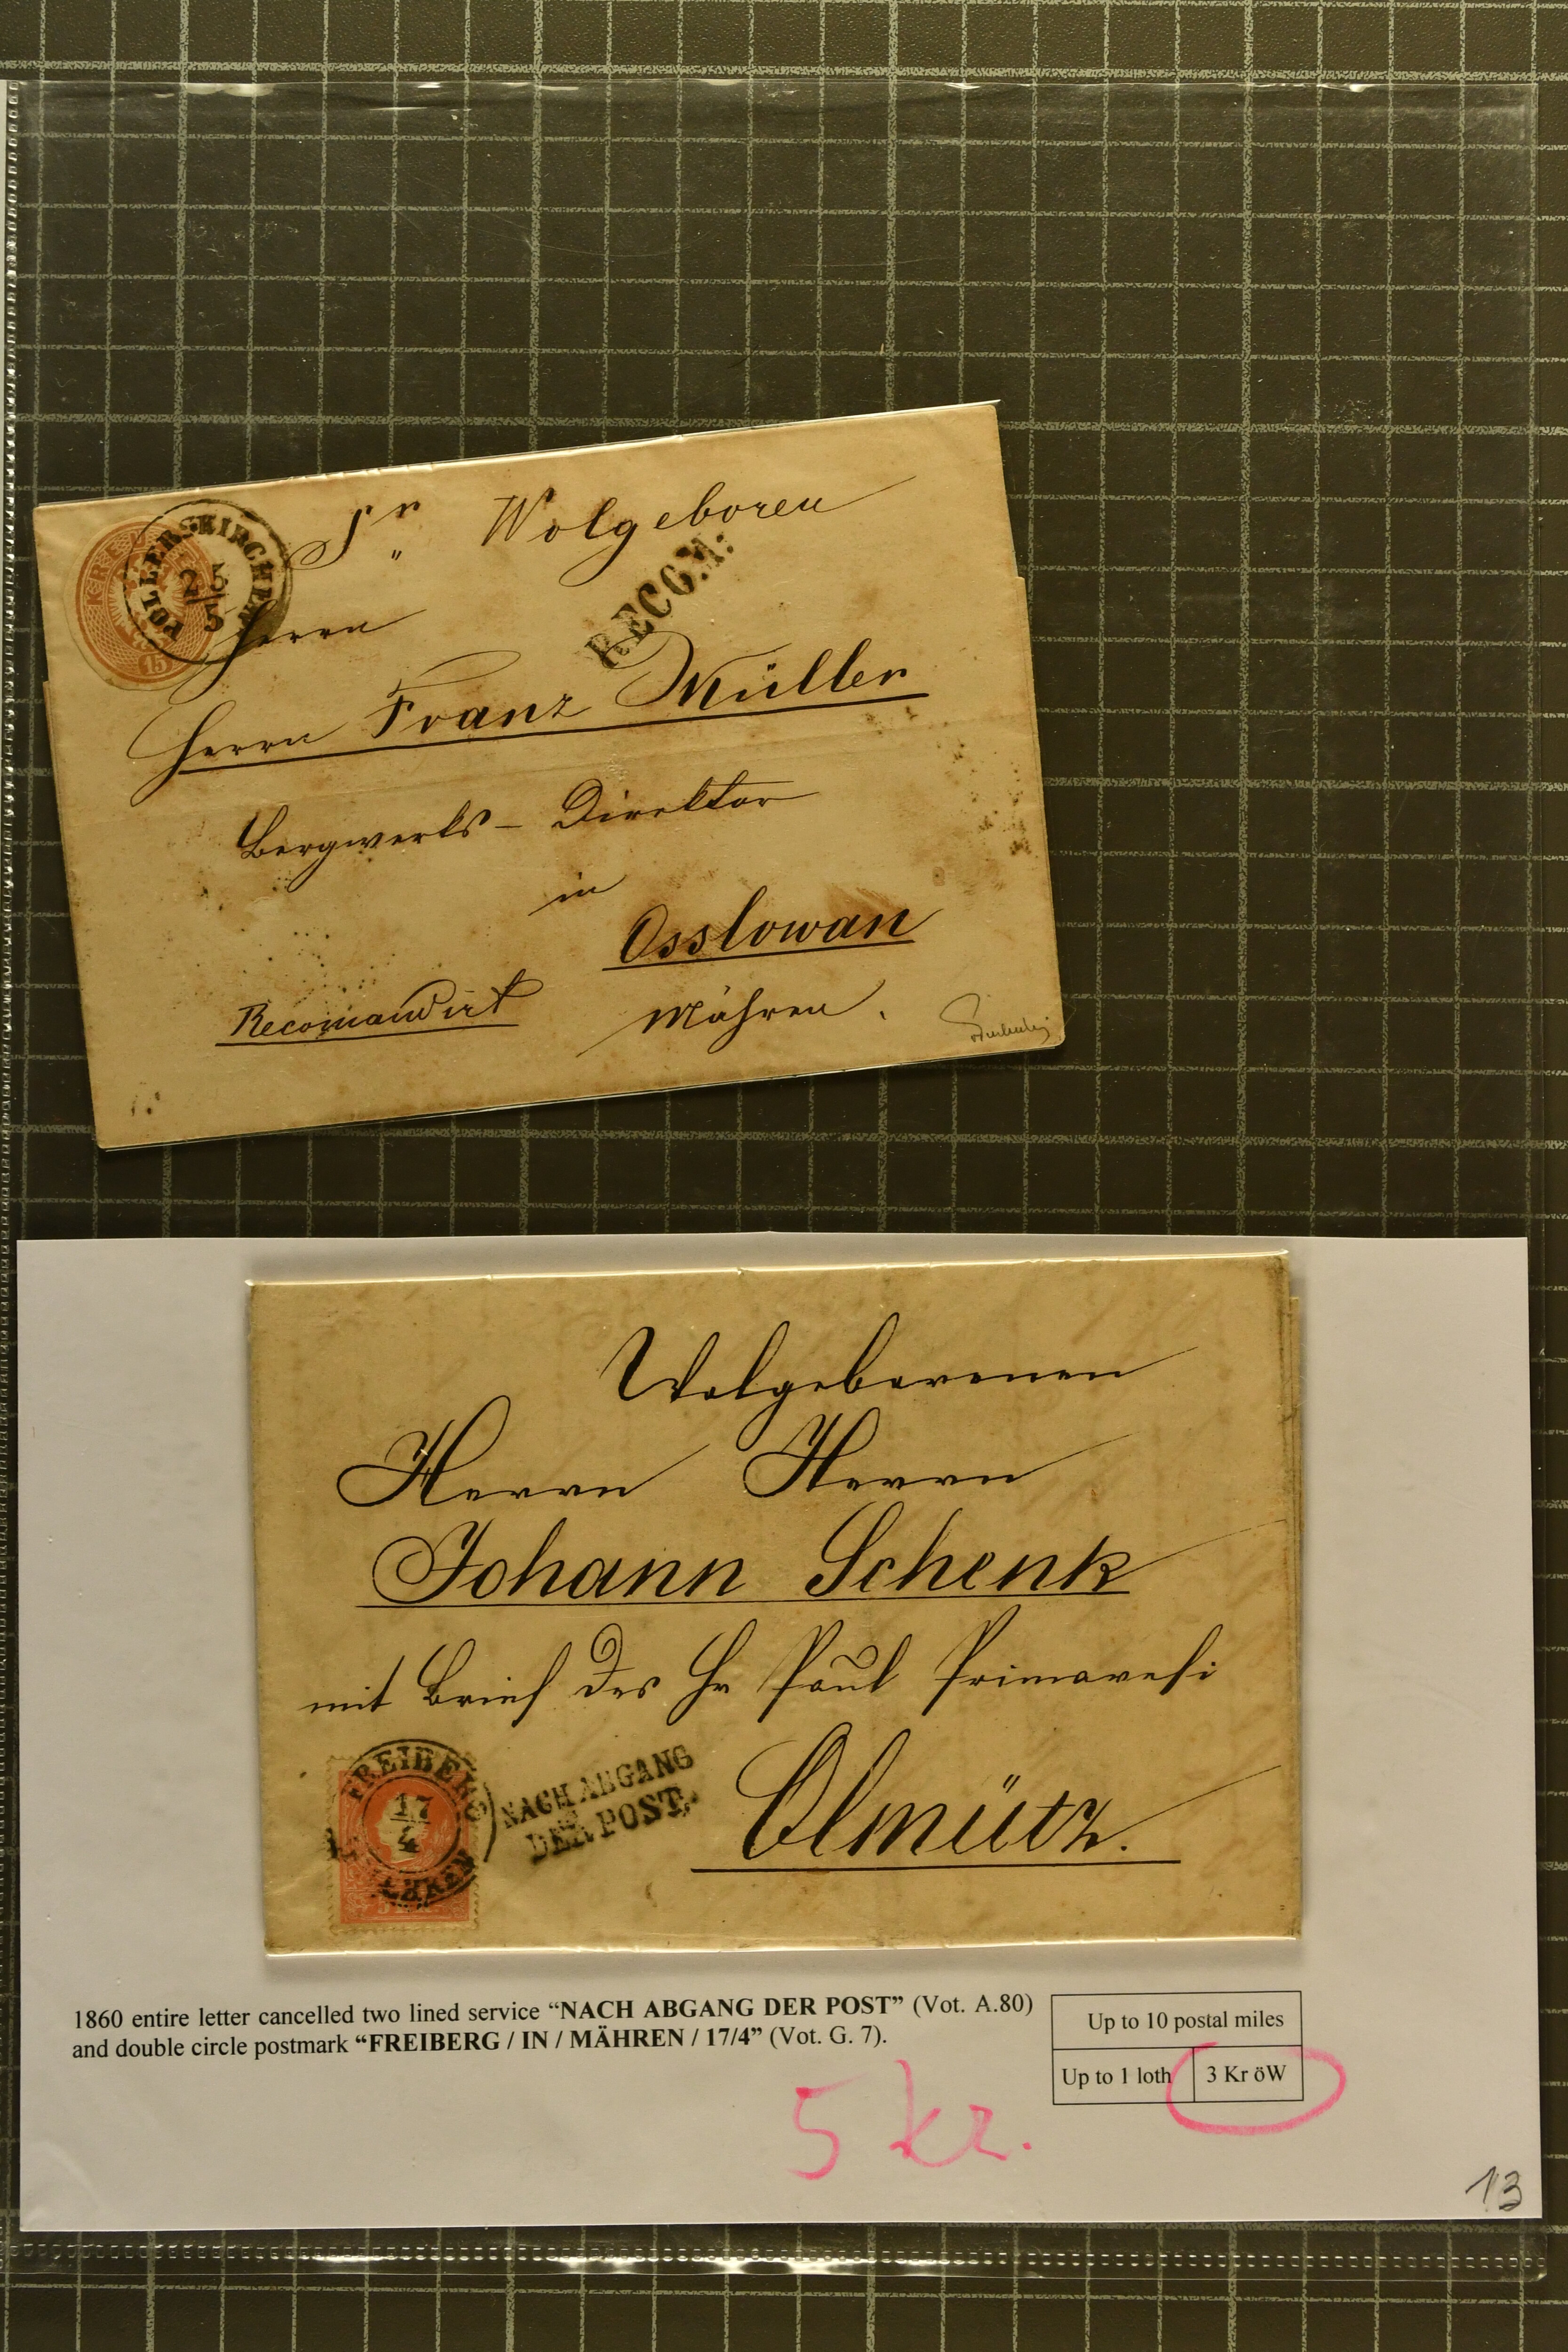 Sr. Wolgeboren
POLLERSKIRCHEN
3/5
15
RECOM:
Herrn
Herrn Franz Müller
Bergwerks-Direktor
in
Osslowan
Recomandirt
Mähren.
Wolgeborenen
Herrn Herrn
Johann Schenk
mit Brief des Hr Paul Primavesi
FREIBERG
17
4
MÄHREN
NACH ABGANG
DER POST.
Olmütz.
1860 entire letter cancelled two lined service “NACH ABGANG DER POST” (Vot. A.80)
and double circle postmark “FREIBERG / IN / MÄHREN / 17/4” (Vot. G. 7).
Up to 10 postal miles
Up to 1 loth 3 Kr öW
5 kr.
13